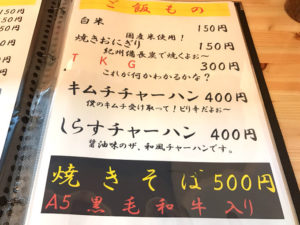 ご飯もの
白米 150円
国産米使用！
焼きおにぎり 150円
紀州備長炭で焼くよぉ～
TKG 300円
これが何かわかるかな？
キムチチャーハン 400円
僕のキムチ受け取って！ピリ辛だよぉ～
しらすチャーハン 400円
醤油味のザ、和風チャーハンです。
焼きそば500円
A5黒毛和牛入り
150円
円
円
円